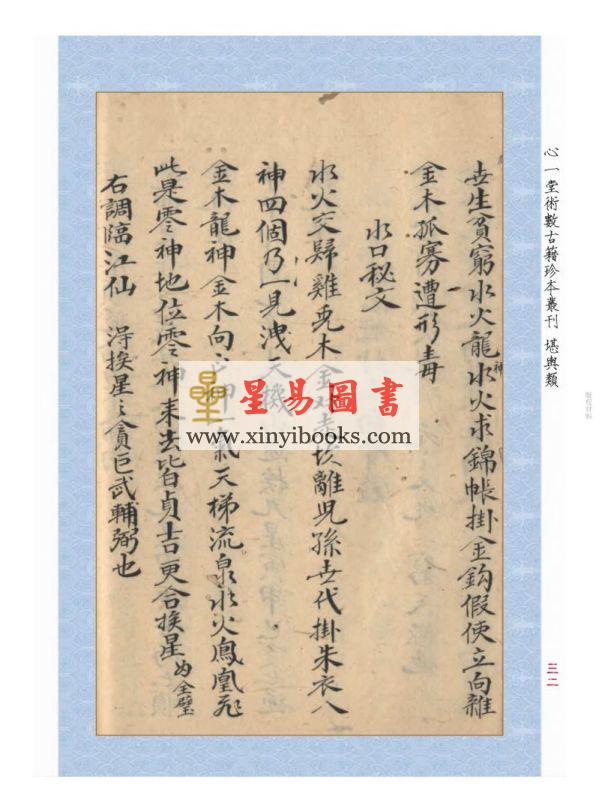 心一堂術數古籍珍本叢刊 堪輿類
世生貧窮水火龍神水火求錦帳掛金鈎假使立向雜
金木孤寡遭形毒
水口秘文
水火交歸雞兎木金 離児孫世代掛朱衣八
神四個乃一見洩天機
金木龍神金木向 氣天梯流泉水火鳳凰飛
此是零神地位零神来去皆貞吉更合挨星為全璧
右調臨江仙 淂挨星之貪巨武輔弼也
星易圖書
www.xinyibooks.com
版权材料
三二